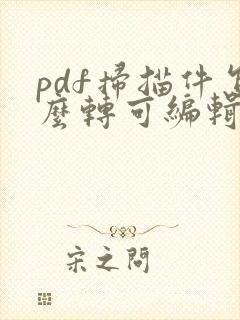 pdf掃描件怎
麼轉可編輯
宋之問